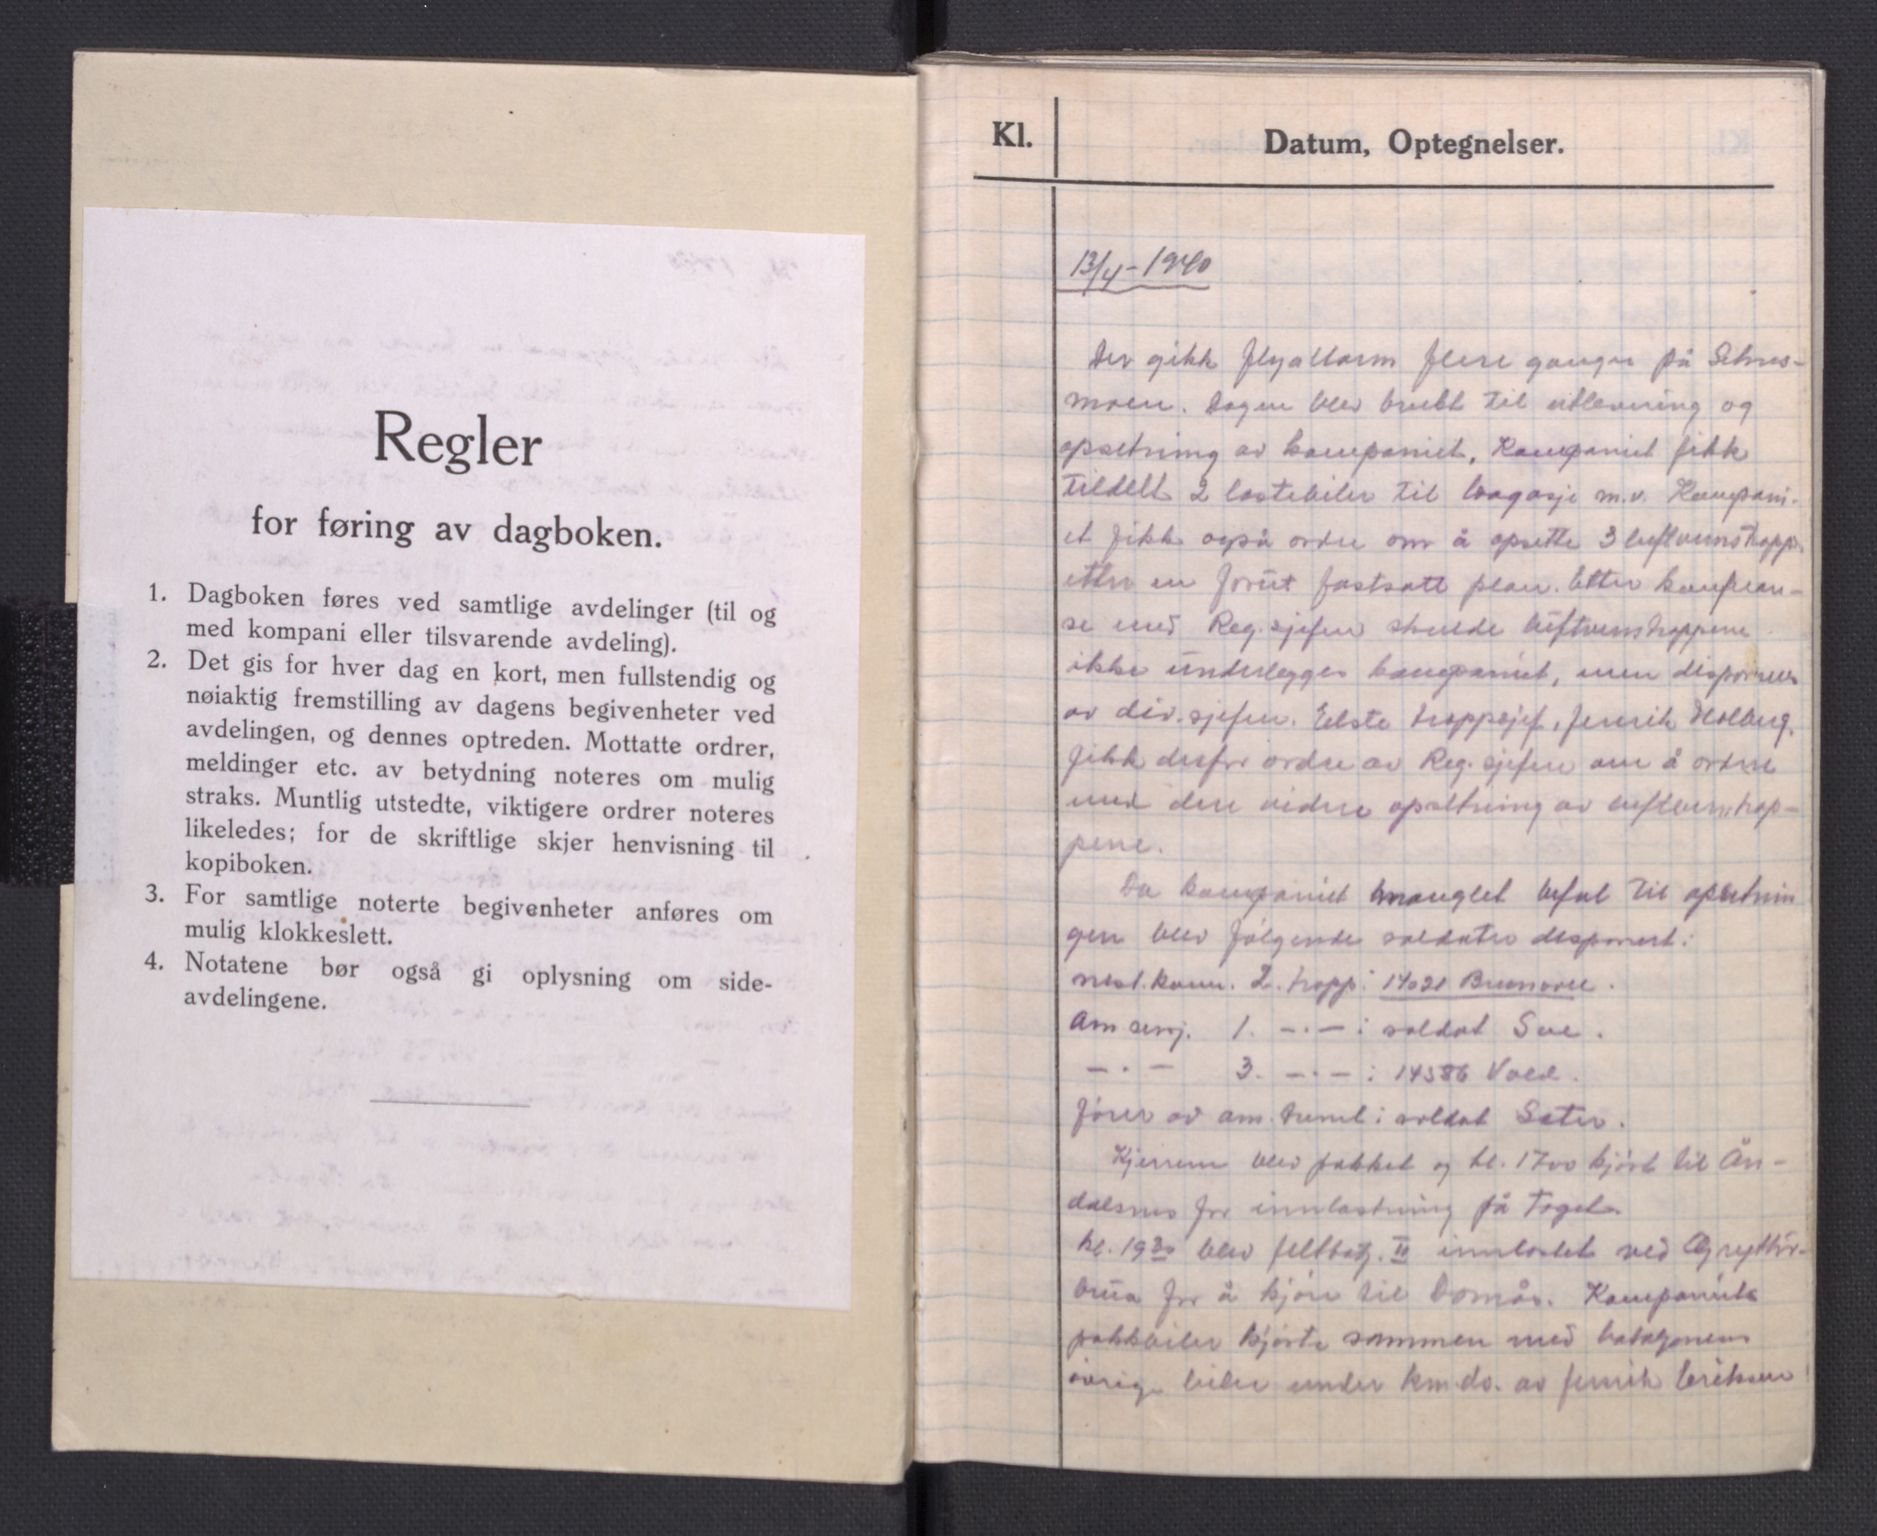 Regler
for føring av dagboken.
1. Dagboken føres ved samtlige avdelinger (til og
med kompani eller tilsvarende avdeling).
2. Det gis for hver dag en kort, men fullstendig og
nøiaktig fremstilling av dagens begivenheter ved
avdelingen, og dennes optreden. Mottatte ordrer,
meldinger etc. av betydning noteres om mulig
straks. Muntlig utstedte, viktigere ordrer noteres
likeledes; for de skriftlige skjer henvisning til
kopiboken.
3. For samtlige noterte begivenheter anføres om
mulig klokkeslett.
4. Notatene bør også gi oplysning om side-
avdelingene.
Kl.
Datum, Optegnelser.
13/4-1940
Der gikk flyallarm flere ganger på Setnes-
moen. Dagen blev brukt til utlevering og
opsetning av kompaniet. Kompaniet fikk
tildelt 2 lastebiler til bagasje m.v. Kompani-
et fikk også ordre om å opsette 3 luftvernstropp.
etter en forut fastsatt plan. Etter konferan-
se med Reg.sjefen skulde luftvernstroppene
ikke underlegges kompaniet, men disponeres
av div.sjefen. Eldste troppsjef, fenrik Holberg,
fikk derfor ordre av Reg.sjefen om å ordne
med den videre opsetning av luftvernstrop-
pene.
Da kompaniet manglet befal til opsetnin
gen blev følgende soldater disponert:
nest.komm. 2. tropp: 14021 Brunvoll.
Am serg. 1. -.- : soldat Sve.
-.- 3. -.- : 14386 Vold.
fører av am. trenet: soldat Seter.
Kjerrene blev pakket og kl. 1700 kjørt til Ån-
dalsnes for innlastning på toget.
kl. 19 30 blev feltbatj. II innlastet ved Gryttør-
brua for å kjøre til Domås. Kompaniets
pakkbiler kjørte sammen med bataljonens
øvrige biler under kmdo. av fenrik Eriksen